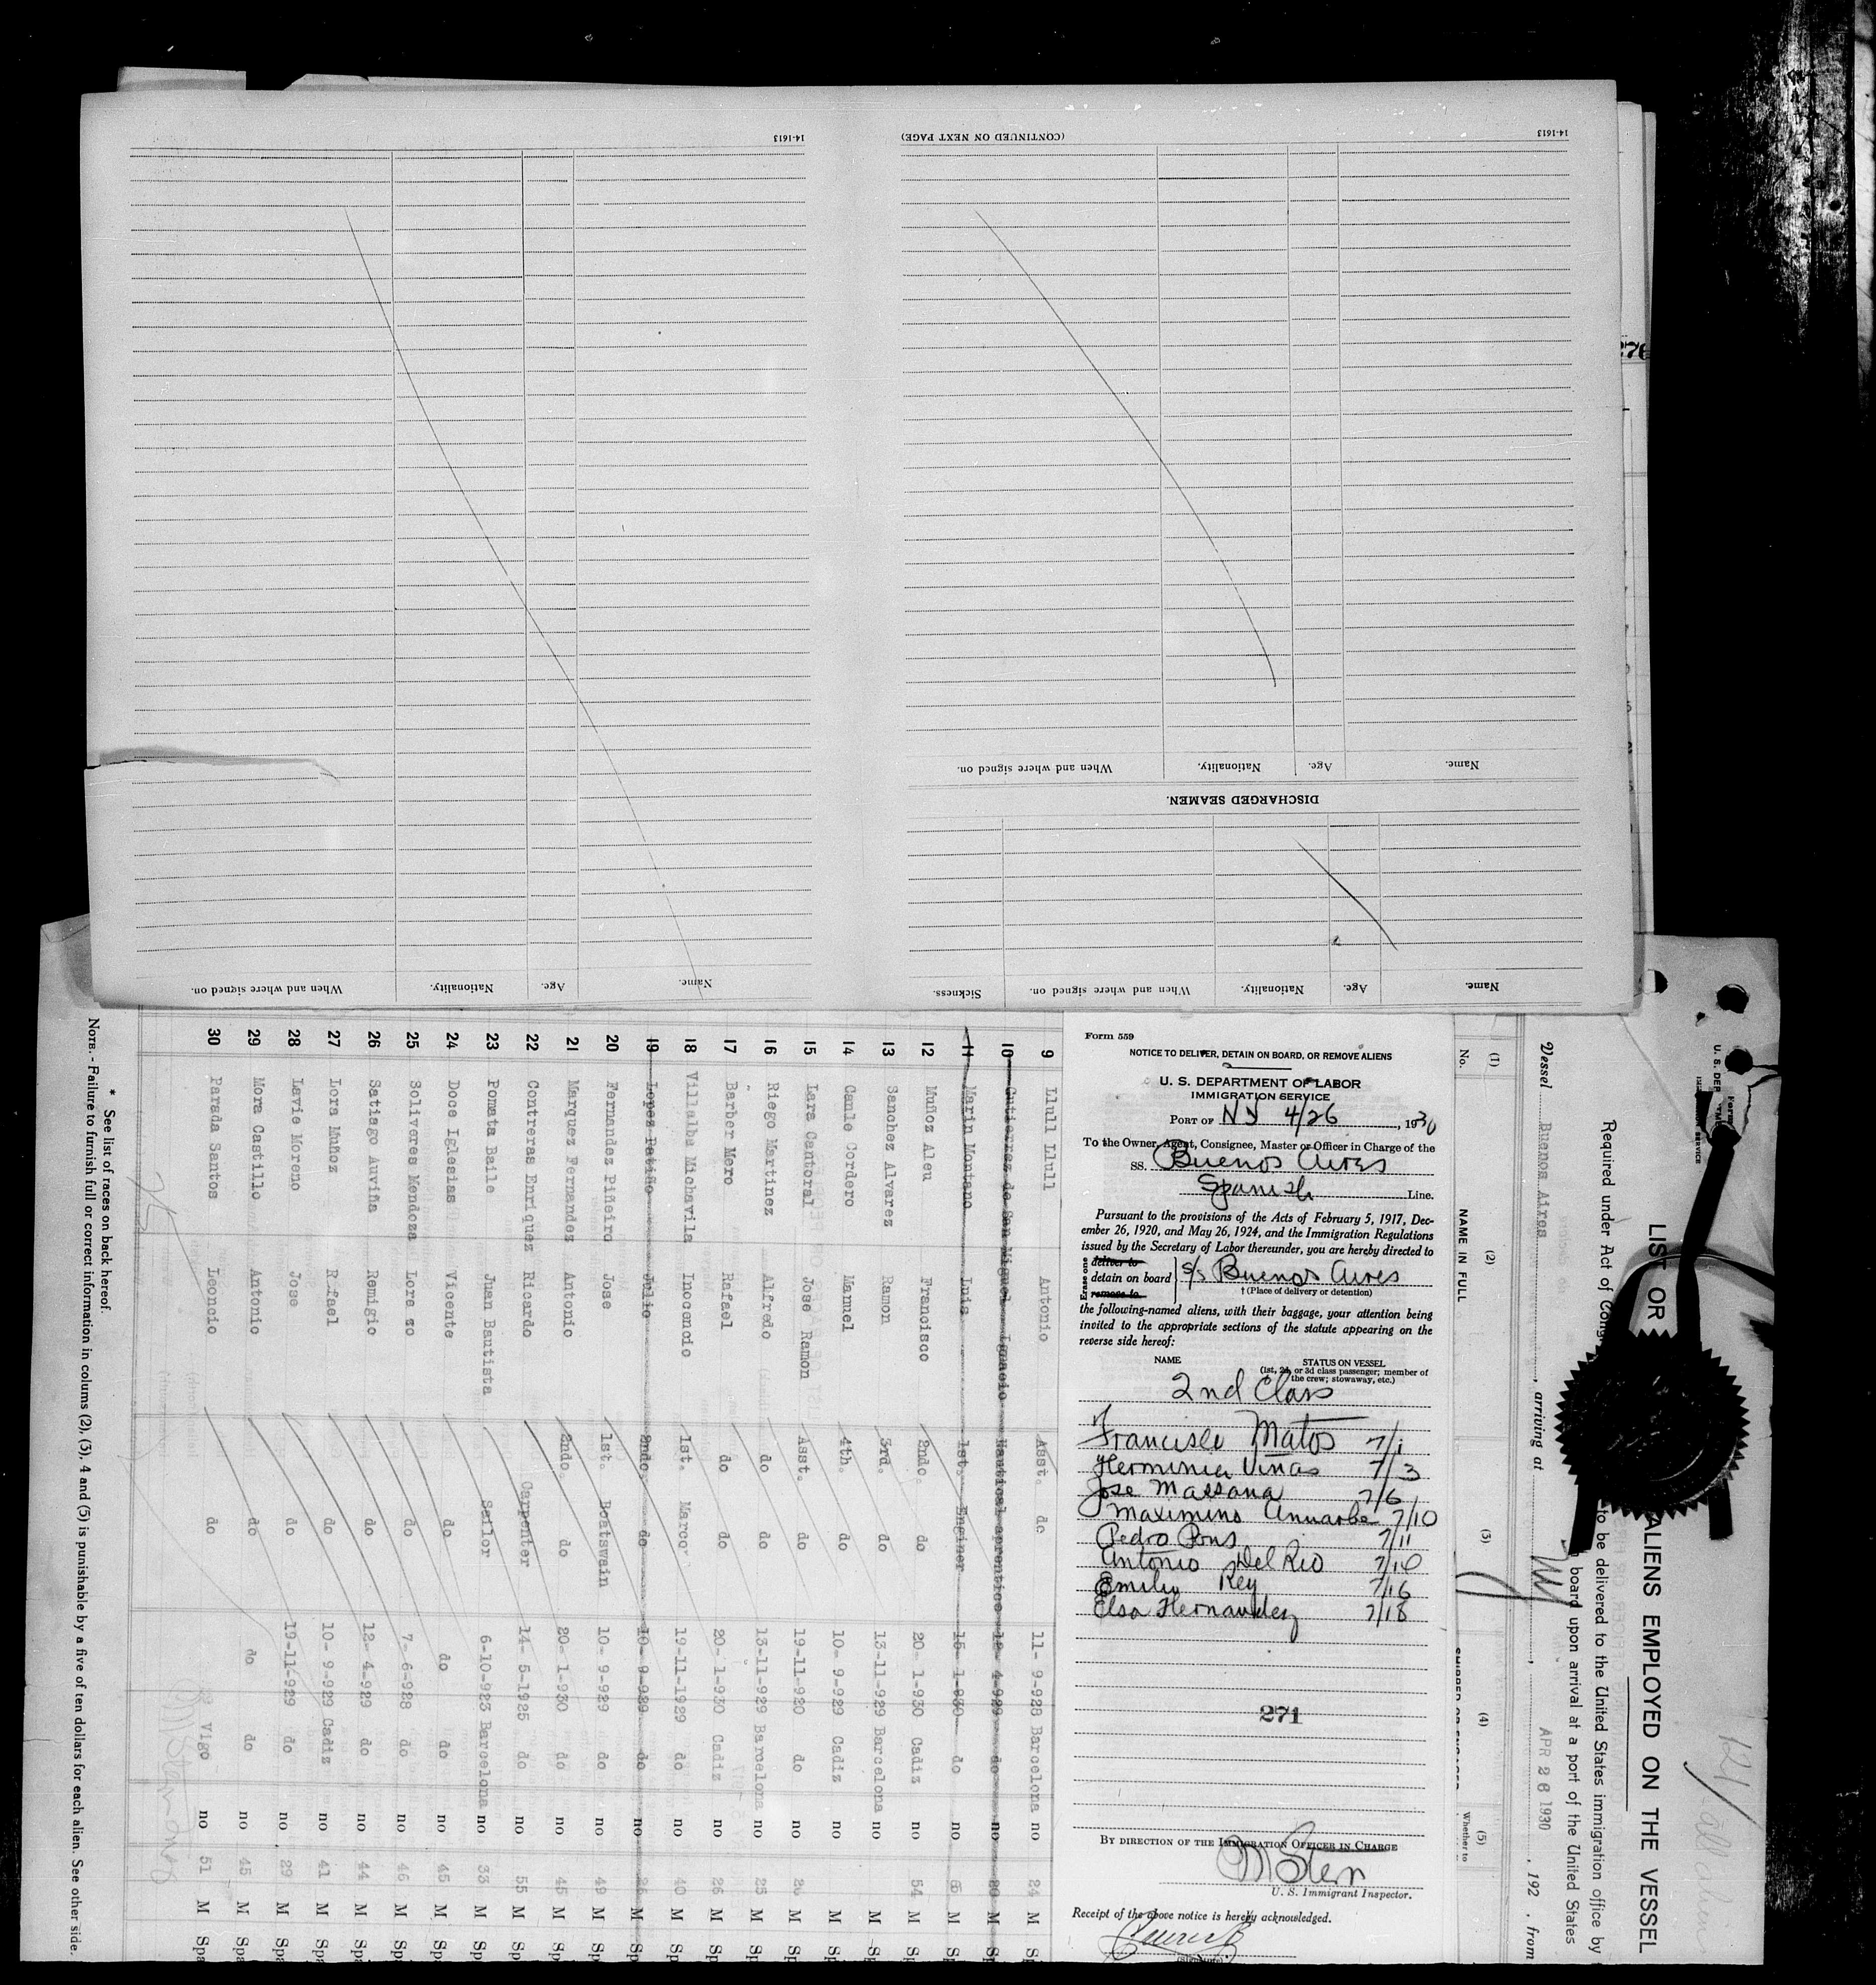 14-1613
(CONTINUED ON NEXT PAGE)
14-1613
When and where signed on.
Nationality.
Age.
Name.
DISCHARGED SEAMEN.
When and where signed on.
Nationality.
Age.
Name.
Sickness.
When and where signed on.
Nationality.
Age.
Name.
Form 559
NOTICE TO DELIVER, DETAIN ON BOARD, OR REMOVE ALIENS
U. S. DEPARTMENT OF LABOR
IMMIGRATION SERVICE
PORT OF NY 4/26, 1930
To the Owner, Agent, Consignee, Master or Officer in Charge of the
SS. Buenos Aires
Spanish Line.
Pursuant to the provisions of the Acts of February 5, 1917, Dec-
ember 26, 1920, and May 26, 1924, and the Immigration Regulations
issued by the Secretary of Labor thereunder, you are hereby directed to
deliver to
detain on board S/s Buenos Aires
remove to
† (Place of delivery or detention)
the following-named aliens, with their baggage, your attention being
invited to the appropriate sections of the statute appearing on the
reverse side hereof:
NAME STATUS ON VESSEL
(1st, 2d, or 3d class passenger; member of
the crew; stowaway, etc.)
2nd Class
Francisco Matos 7/1
Herminia Viñas 7/3
Jose Massana 7/6
Maximino 7/10
Pedro Pons 7/11
Antonio Del Rio
Emilio Rey 7/16
Elsa Hernandez 7/18
271
BY DIRECTION OF THE IMMIGRATION OFFICER IN CHARGE
M Stern
U. S. Immigrant Inspector.
Receipt of the above notice is hereby acknowledged.
(Signature)
LIST OR ALIENS EMPLOYED ON THE VESSEL
Required under Act of to be delivered to the United States immigration office by
board upon arrival at a port of the United States
Vessel Buenos Aires, arriving at APR 26 1930, 192 , from
(1) (2) (3) (4) (5)
No. NAME IN FULL Whether to
9 Llull Llull Antonio Asst. do 11- 9-928 Barcelona no 24 M Spa
10 Gutierrez de San Miguel Ignacio Nautical aprentice 12- 4-929 do no 20 M Spa
11 Marin Montano Luis 1st. Enginer 15- 1-930 do no M Spa
12 Muñoz Aleu Francisco 2ndo. do 20- 1-930 Cadiz no 54 M Spa
13 Sanchez Alvarez Ramon 3rd. do 13-11-929 Barcelona no M Spa
14 Canle Cordero Manuel 4th. do 10- 9-929 Cadiz no M Spa
15 Lara Cantoral Jose Ramon Asst. do 19-11-920 do no M Spa
16 Riego Martinez Alfredo do do 13-11-929 Barcelona no 25 M Spa
17 Barber Mero Rafael do do 20- 1-930 Cadiz no 26 M Spa
18 Villalba Michavila Inocencio 1st. Marcon 19-11-1929 do no 40 M Spa
19 Lopez Patiño Julio 2ndo. do 10- 9-929 do no M Spa
20 Fernandez Piñeiro Jose 1st. Boatswain 10- 9-929 do no 49 M Spa
21 Marquez Fernandez Antonio 2ndo. do 20- 1-930 do no 45 M Spa
22 Contreras Enriquez Ricardo Carpenter 14- 5-1925 do no 55 M Spa
23 Pomata Baile Juan Bautista Sailor 6-10-923 Barcelona no 33 M Spa
24 Doce Iglesias Vicente do do do no 45 M Spa
25 Soliveres Mendoza Lorenzo do 7- 6-928 do no 46 M Spa
26 Satiago Auviña Remigio do 12- 4-929 do no 44 M Spa
27 Lora Muñoz Rafael do 10- 9-929 Cadiz no 41 M Spa
28 Lavie Moreno Jose do 19-11-929 do no 29 M Spa
29 Mora Castillo Antonio do do do no 45 M Spa
30 Parada Santos Leoncio do Vigo no 51 M Spa
* See list of races on back hereof.
NOTE. - Failure to furnish full or correct information in colums (2), (3), 4 and (5) is punishable by a five of ten dollars for each alien. See other side.